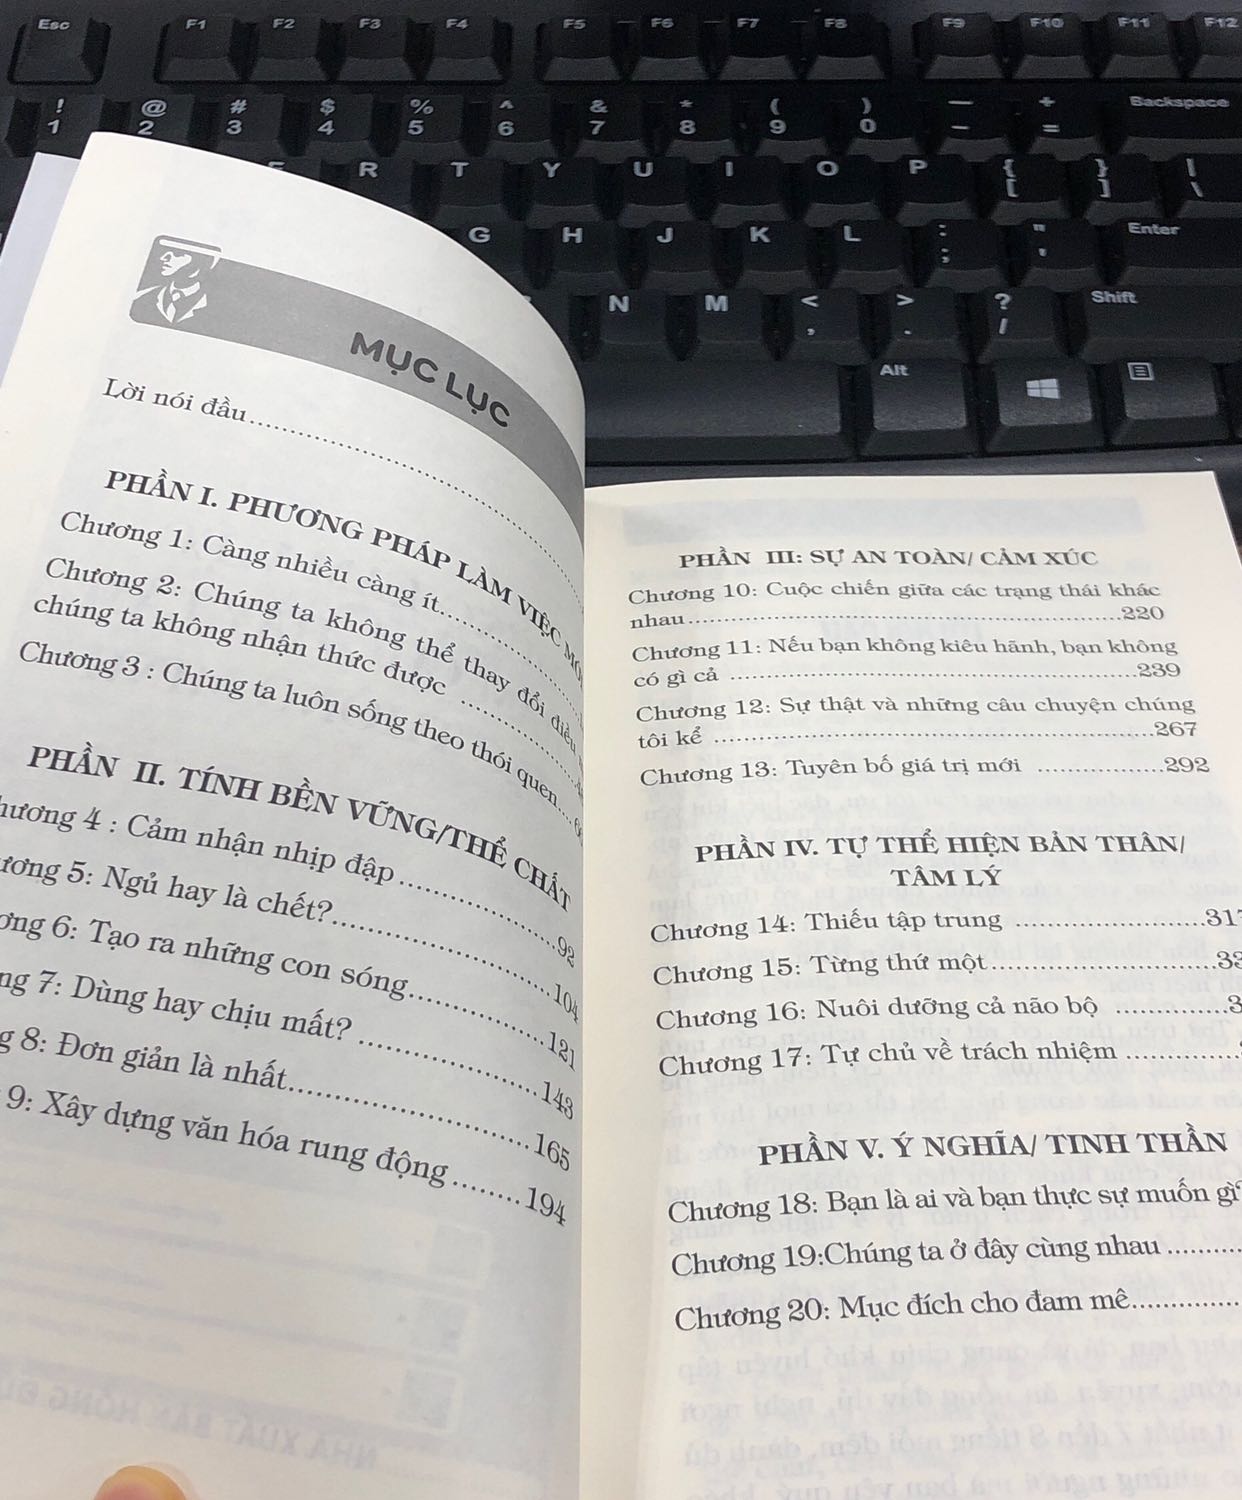 Esc F1 F2 F3 F4 F5 F6 F7 F8 F9 F10 F11 F12
! @ # $ % ^ & * ( ) — + Backspace
1 2 3 4 5 6 7 8 9 0 – =
R T Y U I O P { } |
[ ] \
G H J K L : " Enter
; '
N M < > ? Shift
, . /
Alt
MỤC LỤC
Lời nói đầu
PHẦN I. PHƯƠNG PHÁP LÀM VIỆC
Chương 1: Càng nhiều càng ít
Chương 2: Chúng ta không thể thay đổi điều
chúng ta không nhận thức được
Chương 3 : Chúng ta luôn sống theo thói quen
PHẦN II. TÍNH BỀN VỮNG/THỂ CHẤT
hương 4 : Cảm nhận nhịp đập 92
ương 5: Ngủ hay là chết? 104
ơng 6: Tạo ra những con sóng 121
ng 7: Dùng hay chịu mất? 143
g 8: Đơn giản là nhất 165
9: Xây dựng văn hóa rung động 194
PHẦN III: SỰ AN TOÀN/ CẢM XÚC
Chương 10: Cuộc chiến giữa các trạng thái khác
nhau 220
Chương 11: Nếu bạn không kiêu hãnh, bạn không
có gì cả 239
Chương 12: Sự thật và những câu chuyện chúng
tôi kể 267
Chương 13: Tuyên bố giá trị mới 292
PHẦN IV. TỰ THỂ HIỆN BẢN THÂN/
TÂM LÝ
Chương 14: Thiếu tập trung 317
Chương 15: Từng thứ một 33
Chương 16: Nuôi dưỡng cả não bộ 3
Chương 17: Tự chủ về trách nhiệm
PHẦN V. Ý NGHĨA/ TINH THẦN
Chương 18: Bạn là ai và bạn thực sự muốn gì?
Chương 19:Chúng ta ở đây cùng nhau
Chương 20: Mục đích cho đam mê